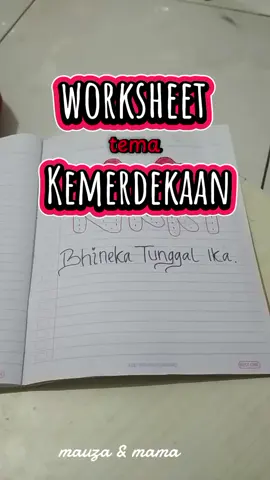 WORKSHEET
tema
KEMERDEKAAN
NKRI
Bhineka Tunggal Ika.
mauza & mama